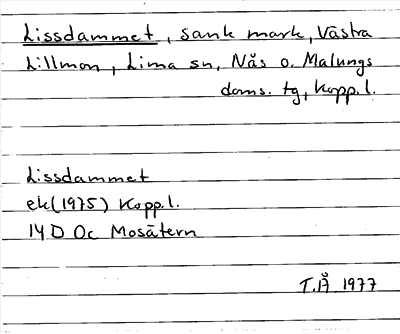 Lissdammet, sank mark, Västra
Lillmon, Lima sn, Nås o. Malungs
doms. tg, Kopp.l.
Lissdammet
ek(1975) Kopp.l.
14 D Oc Mosätern
T.Å 1977